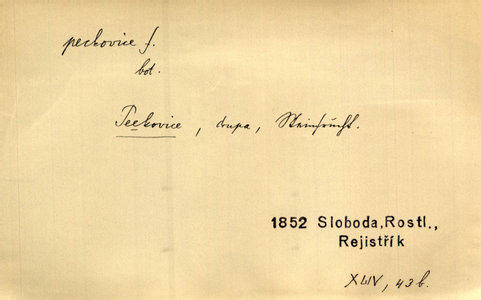 peckovice f.
bot.
Peckovice, drupa, Steinfrucht.
1852 Sloboda, Rostl.,
Rejistřík
XLIV, 43b.